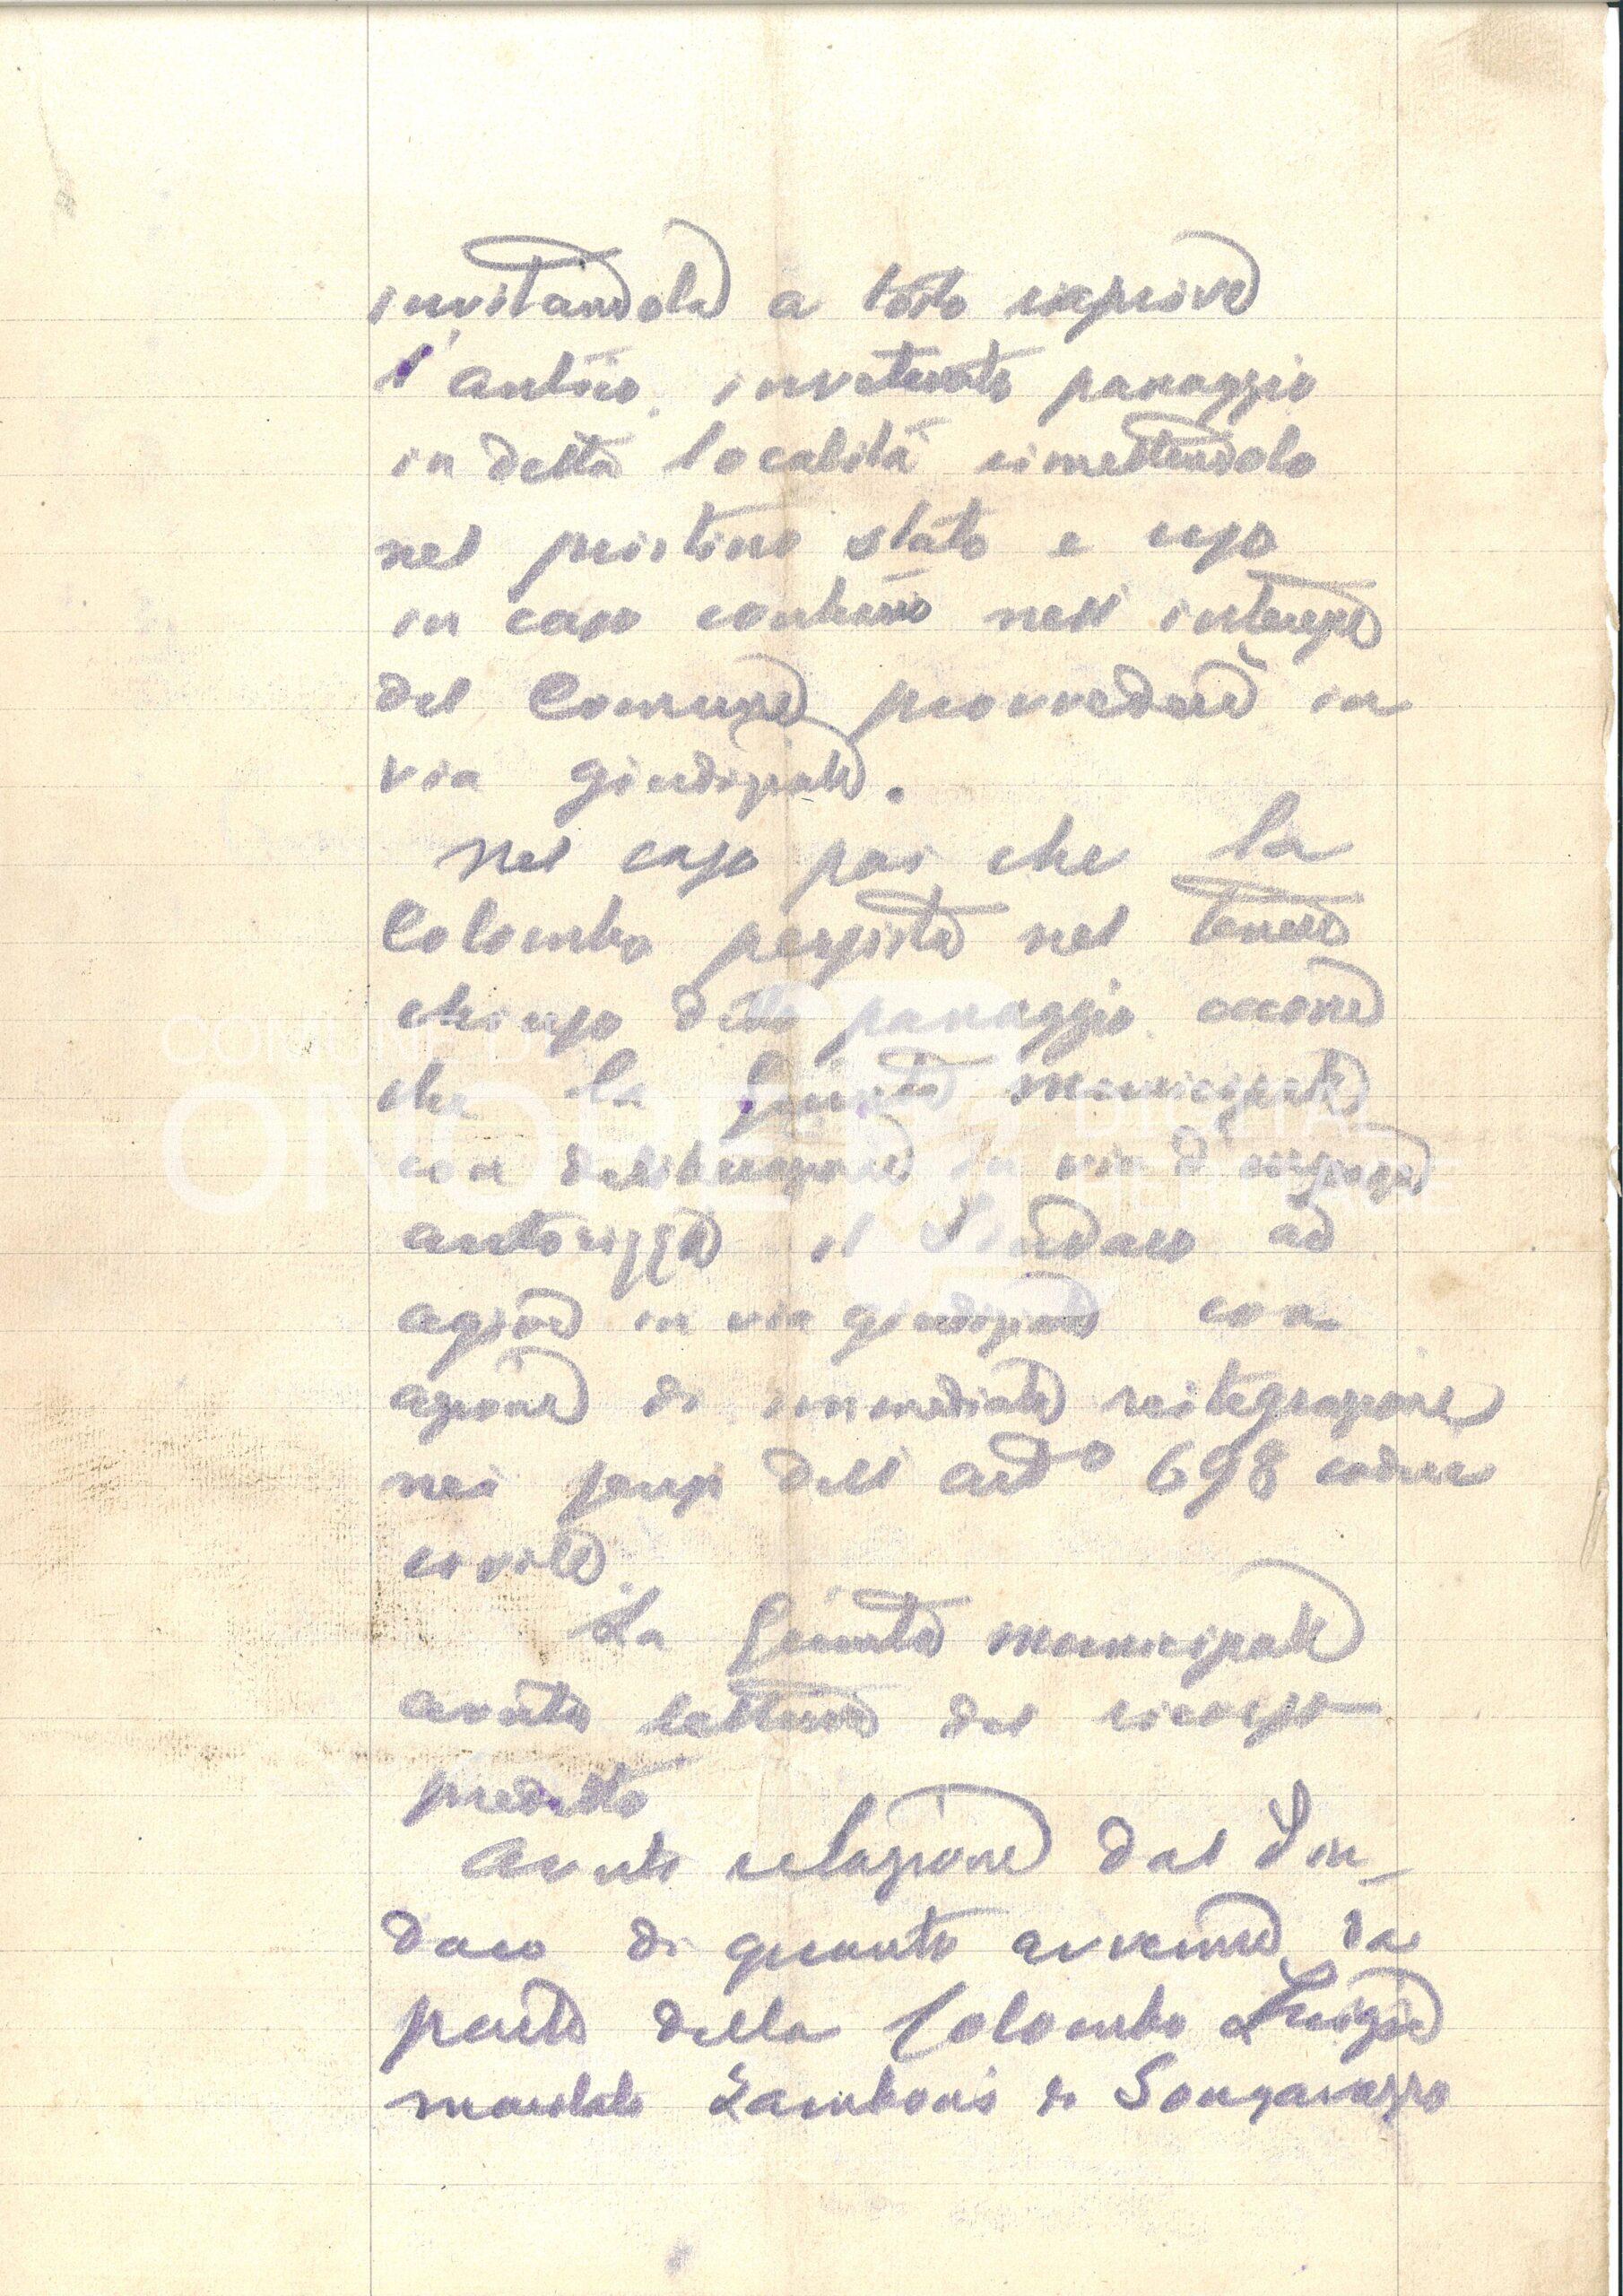 invitandola a tosto riaprire
l'antico inveterato passaggio
in detta località rimettendolo
nel pristino stato e uso
in caso contrario nell'interesse
del Comune provvederà in
via giudiziale.
Nel caso poi che la
Colombo persista nel tenere
chiuso detto passaggio occorre
che la Giunta municipale
con deliberazione in via d'urgenza
autorizzi il Sindaco ad
agire in via giudiziale con
azione di immediata reitegrazione
nei sensi dell'art° 698 codice
civile.
La Giunta municipale
avuta lettura del ricorso
predetto
Avuta relazione dal Sin-
daco di quanto avvenne da
parte della Colombo Luigia
maritata Zamboni di Songavazzo
COMUNE DI
ONORE
DIGITAL
HERITAGE